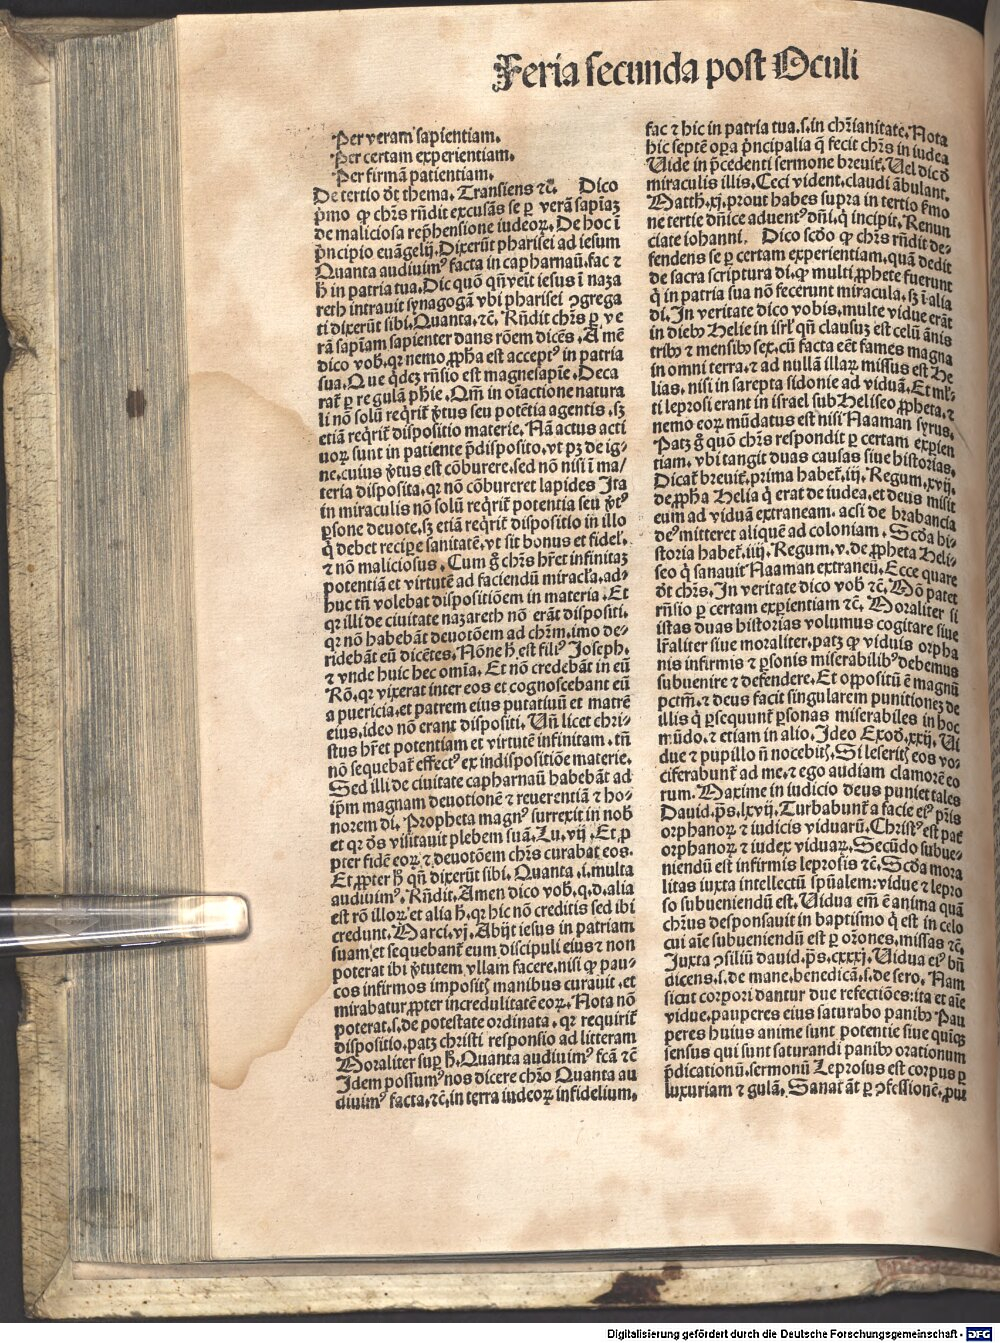 Feria secunda post Oculi
Per veram sapientiam.
Per certam experientiam.
Per firmā patientiam.
De tertio dt̄ thema. Transiens ⁊c̄. Dico
p̄mo ꝙ chr̄s rn̄dit excusās se ꝑ verā sapiaꝫ
de maliciosa rep̄hensione iudeoꝝ. De hoc ī
p̄ncipio euāgelij. Dixerūt pharisei ad iesum
Quanta audiuimꝰ facta in capharnaū. fac ⁊
h̄ in patria tua. Dic quō qn̄ veīt iesus ī naza
reth intrauit synagogā vbi pharisei ꝯgrega
ti dixerūt sibi. Quanta. ⁊c̄. Rn̄dit chr̄s ꝑ ve
rā sapīam sapienter dans rōem dicēs. Amē
dico vob̄. qꝛ nemo ꝓph̄a est acceptꝰ in patria
sua. Que qͥdeꝫ rn̄sio est magne sapīe. Deca
rat̄ ꝑ regulā ph̄ie. Qm̄ in oī actione natura
li nō solū reqͥrit̄ v̄tus seu potētia agentis. sꝫ
etiā reqͥrit̄ dispositio materie. Nā actus acti
uoꝝ sunt in patiente p̄disposito. vt pꝫ de ig⸗
ne. cuius v̄tus est cōburere. sed nō nisi ī ma/
teria disposita. qꝛ nō cōbureret lapides Ita
in miraculis nō solū reqͥrit̄ potentia seu v̄tꝰ
ꝑsone deuote. sꝫ etiā reqͥrit̄ dispositio in illo
q̄ debet recipe sanitatē. vt sit bonus et fidel̄.
⁊ nō maliciosus. Cum g̊ chr̄s hr̄et infinitaꝫ
potentiā et virtutē ad faciendū miracl̄a. ad⸗
huc tn̄ volebat dispositiōem in materia. Et
qꝛ illi de ciuitate nazareth nō erāt dispositi.
qꝛ nō habebāt deuotōem ad chr̄m. imo de⸗
ridebāt eū dicētes. Nōne h̄ est filiꝰ Joseph.
⁊ vnde huic hec omīa. Et nō credebāt in eū
Rō. qꝛ vixerat inter eos et cognoscebant eū
a puericia. et patrem eius putatiuū et matrē
eius. ideo nō erant dispositi. Un̄ licet chri⸗
stus hr̄et potentiam et virtutē infinitam. tn̄
nō sequebat̄ effectꝰ ex indispositiōe materie.
Sed illi de ciuitate capharnaū habebāt ad
ip̄m magnam deuotionē ⁊ reuerentiā ⁊ ho⸗
norem di. Propheta magnꝰ surrexit in nob̄
et qꝛ dꝰs visitauit plebem suā. Lu. vij. Et ꝓ
pter fidē eoꝝ ⁊ deuotōem chr̄s curabat eos.
Et ꝓpter h̄ qn̄ dixerūt sibi. Quanta .i. multa
audiuimꝰ. Rn̄dit. Amen dico vob̄. q. d. alia
est rō illoꝝ et alia h̄. qꝛ hic nō creditis sed ibi
credunt. Marci. vj. Abijt iesus in patriam
suam et sequebant̄ eum discipuli eius ⁊ non
poterat ibi v̄tutem vllam facere. nisi ꝙ pau⸗
cos infirmos impositꝭ manibus curauit. et
mirabatur ꝓpter incredulitatē eoꝝ. Nota nō
poterat. s. de potestate ordinata. qꝛ requirit̄
dispositio. patꝫ christi responsio ad litteram
Moraliter suꝑ h̄. Quanta audiuimꝰ fc̄ā ⁊c̄
Idem possumꝰ nos dicere chr̄o Quanta au
diuimꝰ facta. ⁊c̄. in terra iudeoꝝ infidelium.
fac ⁊ hic in patria tua. s. in chr̄ianitate. Nota
hic septē oꝑa p̄ncipalia q̄ fecit chr̄s in iudea
Uide in p̄cedenti sermone breuit̄. Uel dic d̄
miraculis illis. Ceci vident. claudi ābulant.
Matth. xj. prout habes supra in tertio s̄mo
ne tertie dn̄ice aduentꝰ dn̄i. q̄ incipit. Renun
ciate iohanni. Dico scd̄o ꝙ chr̄s rn̄dit de⸗
fendens se ꝑ certam experientiam. quā dedit
de sacra scriptura di. ꝙ multi ꝓphete fuerunt
q̄ in patria sua nō fecerunt miracula. sꝫ ī alia
di. In veritate dico vobis. multe vidue erāt
in diebꝰ Helie in isrl̄ qn̄ clausuꝫ est celū ānis
tribꝰ ⁊ mensibꝰ sex. cū facta eēt fames magna
in omni terra. ⁊ ad nullā illaꝝ missus est He
lias. nisi in sarepta sidonie ad viduā. Et ml̄⸗
ti leprosi erant in israel sub Heliseo ꝓpheta. ⁊
nemo eoꝝ mūdatus est nisi Naaman syrus.
Patꝫ g̊ quō chr̄s respondit ꝑ certam expien
tiam. vbi tangit duas causas siue historias.
Dicat̄ breuit̄. prima habet̄. iij. Regum. xvij.
de ꝓph̄a Helia q̄ erat de iudea. et deus misit
eum ad viduā extraneam. ac si de brabancia
deꝰ mitteret aliquē ad coloniam. Scd̄a hi⸗
storia habet̄. iiij. Regum. v. de ꝓpheta Heli⸗
seo q̄ sanauit Naaman extraneū. Ecce quare
dt̄ chr̄s. In veritate dico vob̄ ⁊c̄. Mō patet
rn̄sio ꝑ certam exꝑientiam ⁊c̄. Moraliter si
istas duas historias volumus cogitare siue
lr̄aliter siue moraliter. patꝫ ꝙ viduis orpha
nis infirmis ⁊ ꝑsonis miserabilibꝰ debemus
subuenire ⁊ defendere. Et oppositū ē magnū
pctm̄. ⁊ deus facit singularem punitionez de
illis q̄ ꝑsequunt̄ ꝑsonas miserabiles in hoc
mūdo. ⁊ etiam in alio. Ideo Exod̄. xxij. Ui
due ⁊ pupillo n̄ nocebitꝭ. Si leseritꝭ eos vo⸗
ciferabunt̄ ad me. ⁊ ego audiam clamorē eo
rum. Maxime in iudicio deus puniet tales
Dauid. p̄s. lxvij. Turbabunt̄ a facie eiꝰ pr̄is
orphanoꝝ ⁊ iudicis viduarū. Christꝰ est pat̄
orphanoꝝ ⁊ iudex viduaꝝ. Secūdo subue⸗
niendū est infirmis leprosis ⁊c̄. Scd̄a mora
litas iuxta intellectū spūalem: vidue ⁊ lepro
so subueniendū est. Uidua em̄ ē anima quā
chr̄us desponsauit in baptismo q̄ est in celo
cui aīe subueniendū est ꝑ orōnes. missas ⁊c̄.
Juxta ꝯsiliū dauid. p̄s. cxxxj. Uidua eiꝰ bn̄
dicens. s. de mane. benedicā. s. de sero. Nam
sicut corpori dantur due refectiōes: ita et aīe
vidue. pauperes eius saturabo panibꝰ Pau
peres huius anime sunt potentie siue quinqꝫ
sensus qui sunt saturandi panibꝰ orationum
p̄dicationū. sermonū Leprosus est corpus ꝑ
luxuriam ⁊ gulā. Sanat̄ āt ꝑ ꝯfessionē. ꝓut
Digitalisierung gefördert durch die Deutsche Forschungsgemeinschaft - DFG